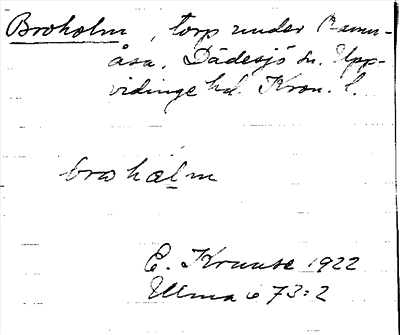 Broholm, torp under Ramn-
åsa, Dädesjö sn. Upp-
vidinge hd. Kron. l.
broholm
E. Kruuse 1922
Ulma 673:2